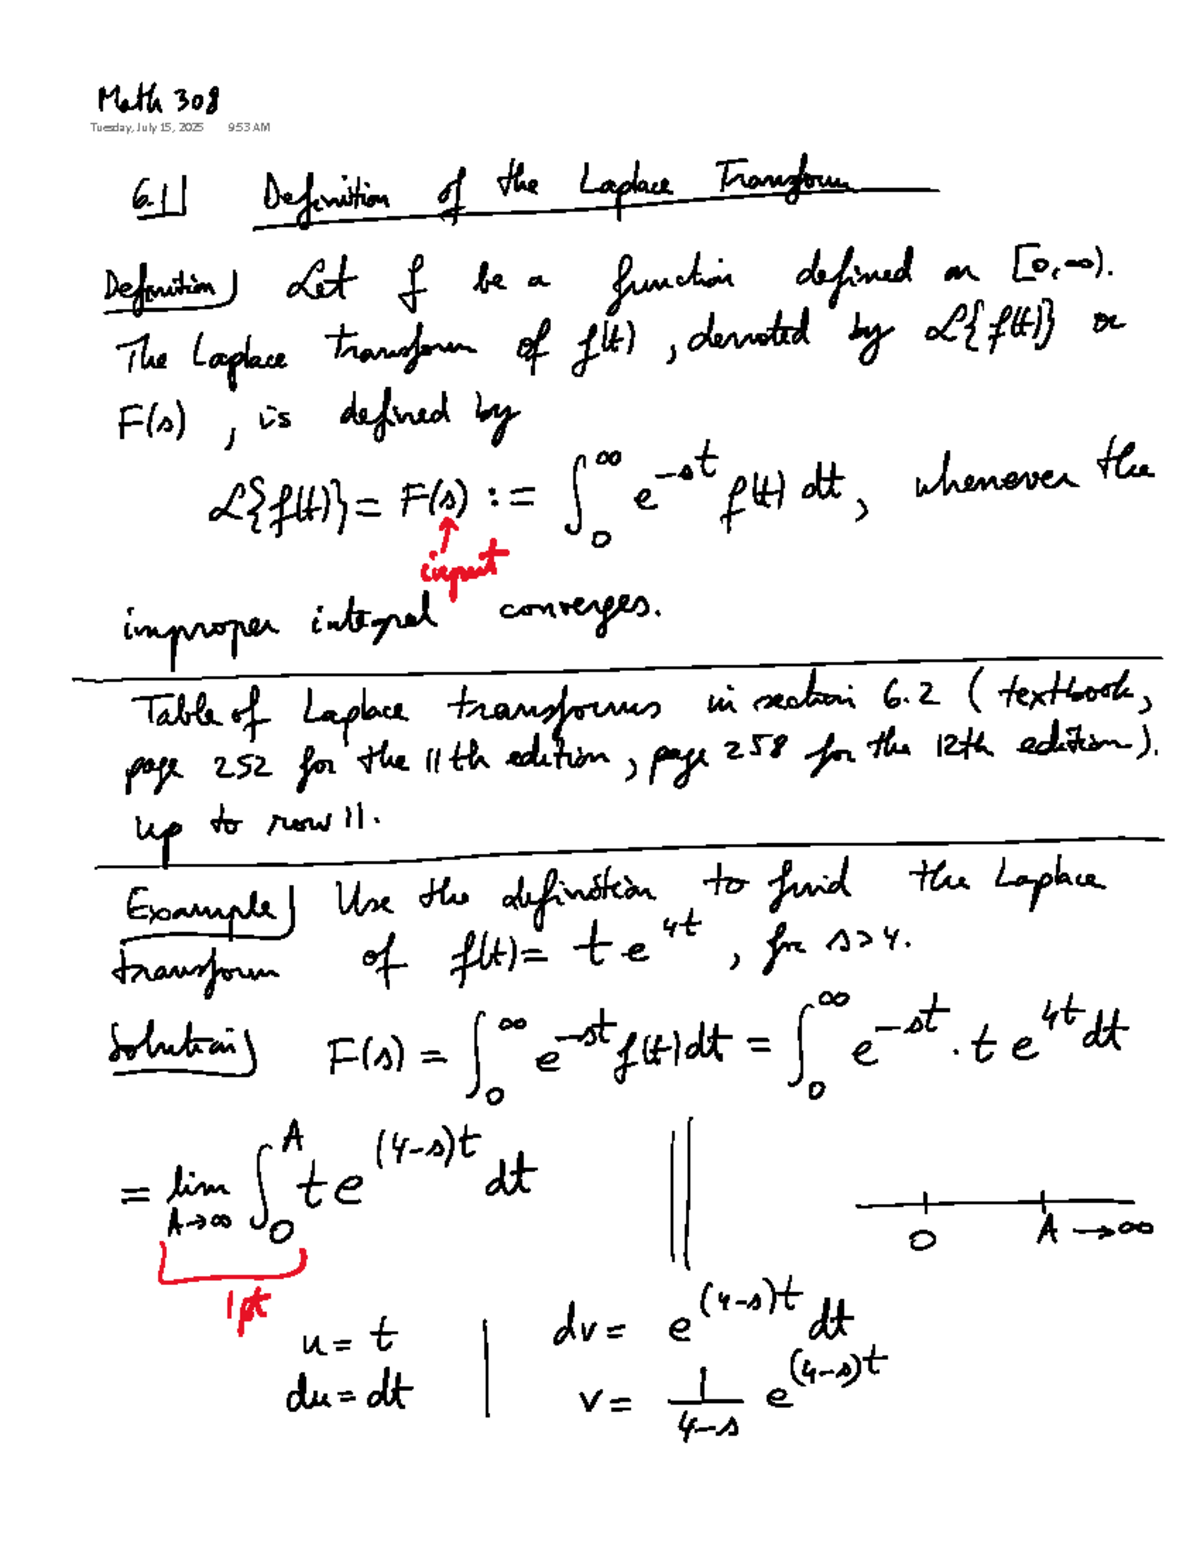 Math 308
Tuesday, July 15, 2025 9:53 AM
6.1 Definition of the Laplace Transform
Definition) Let f be a function defined on [0,∞).
The Laplace transform of f(t), denoted by ℒ{f(t)} or
F(s), is defined by
ℒ{f(t)} = F(s) := ∫₀^∞ e^(-st) f(t) dt, whenever the
↑
input
improper integral converges.
Table of Laplace transforms in section 6.2 (textbook,
page 252 for the 11th edition, page 258 for the 12th edition).
up to row 11.
Example) Use the definition to find the Laplace
transform of f(t) = t e^(4t), for s>4.
Solution) F(s) = ∫₀^∞ e^(-st) f(t) dt = ∫₀^∞ e^(-st) · t e^(4t) dt
= lim A→∞ ∫₀^A t e^((4-s)t) dt || 0 A → ∞
1pt
u = t | dv = e^((4-s)t) dt
du = dt | v = 1/(4-s) e^((4-s)t)